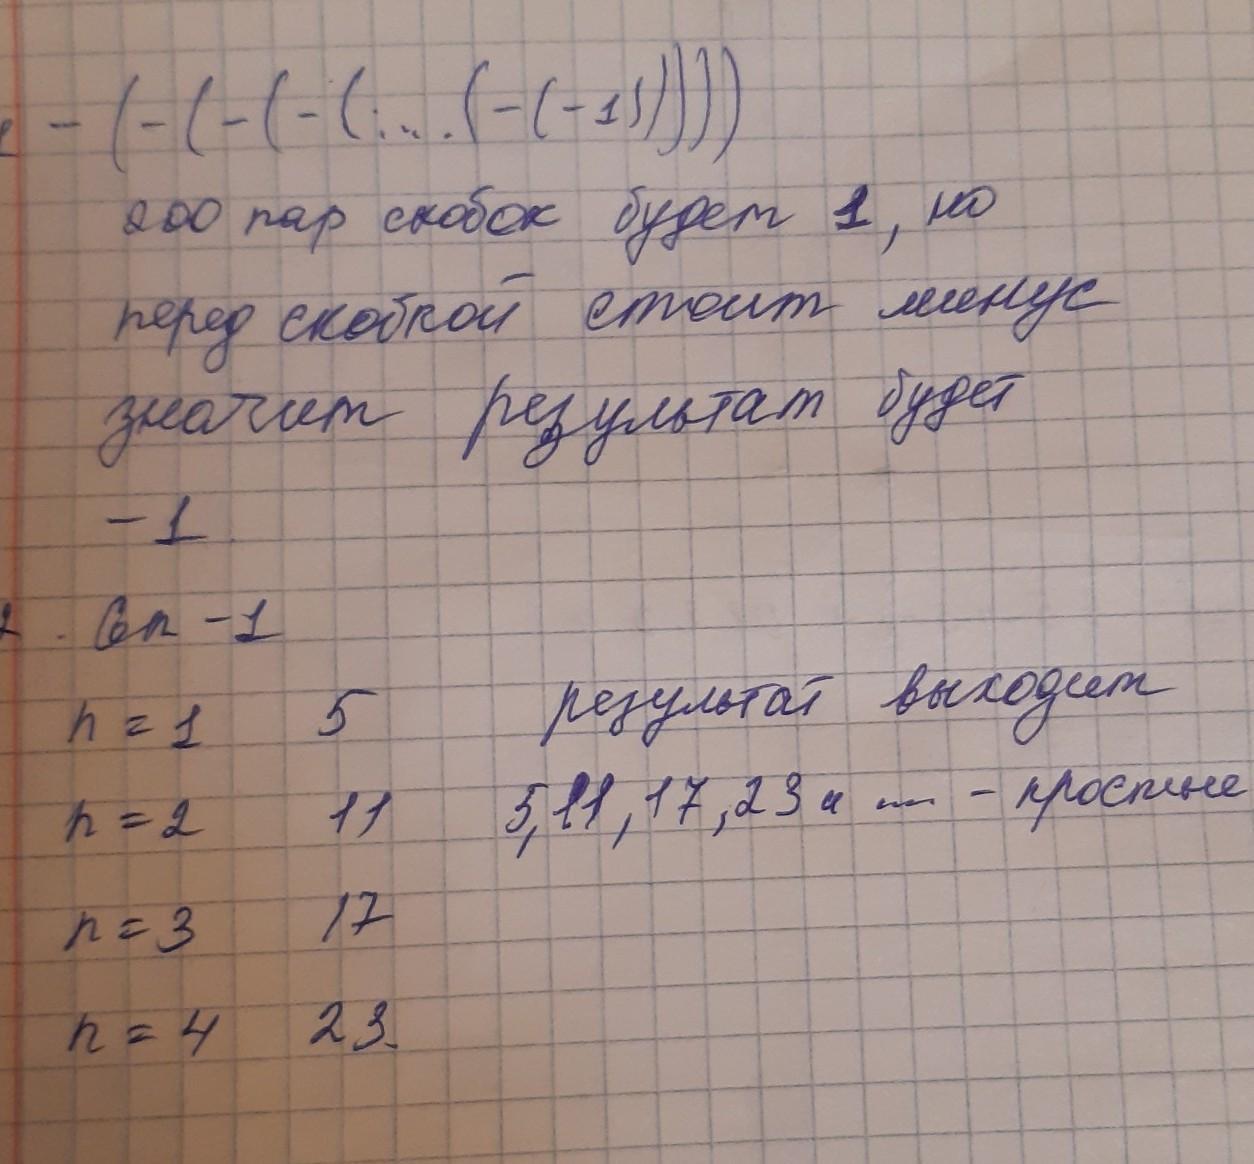 1 - (-(-(-(-(.....(-(-1)))))))
200 пар скобок будет 1, но
перед скобкой стоит минус
значит результат будет
-1
2. 6n -1
n = 1 5 результат выходит
n = 2 11 5, 11, 17, 23 и ... - простые
n = 3 17
n = 4 23.